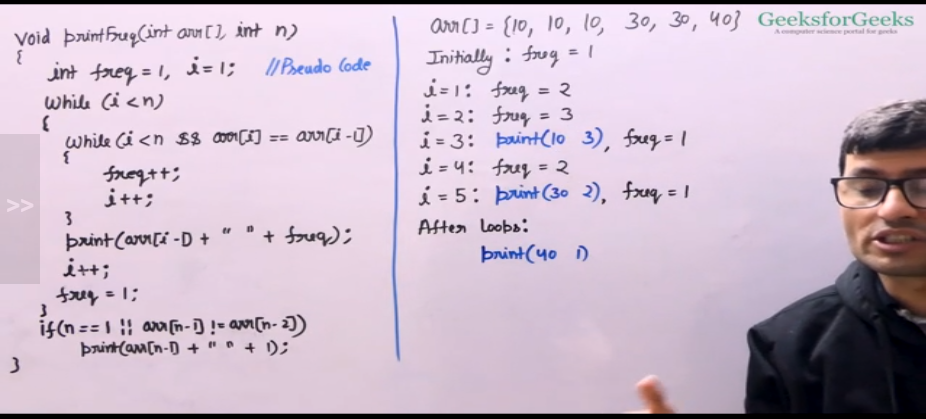 void printFreq(int arr[], int n)
{
int freq = 1, i = 1; //Pseudo Code
while (i < n)
{
while (i < n && arr[i] == arr[i-1])
{
freq++;
i++;
}
print(arr[i-1] + " " + freq);
i++;
freq = 1;
}
if(n == 1 || arr[n-1] != arr[n-2])
print(arr[n-1] + " " + 1);
}
arr[] = {10, 10, 10, 30, 30, 40}
Initially : freq = 1
i=1: freq = 2
i=2: freq = 3
i = 3: print(10 3), freq = 1
i = 4: freq = 2
i = 5: print(30 2), freq = 1
After loops:
print(40 1)
GeeksforGeeks
A computer science portal for geeks
>>